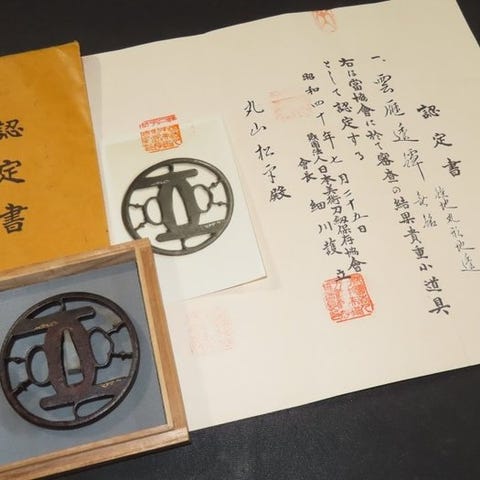 認定書
認定書
一、雲雁透鐔
無銘
右は當協會に於て審査の結果貴重小道具
として認定する
昭和四十年七月二十五日
財團法人日本美術刀劍保存協會
會長 細川護立
丸山松治殿